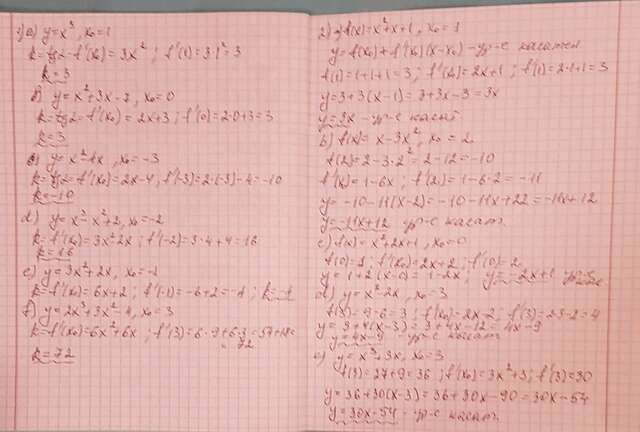 1) a) y=x³, x₀=1
k=tgα=f'(x₀)=3x²; f'(1)=3·1²=3
k=3
b) y=x²+3x-7, x₀=0
k=tgα=f'(x₀)=2x+3; f'(0)=2·0+3=3
k=3
c) y=x²-4x, x₀=-3
k=tgα=f'(x₀)=2x-4; f'(-3)=2·(-3)-4=-10
k=-10
d) y=x³-x²+2, x₀=-2
k=f'(x₀)=3x²-2x; f'(-2)=3·4+4=16
k=16
e) y=3x²+2x, x₀=-1
k=f'(x₀)=6x+2; f'(-1)=-6+2=-4; k=-4
f) y=2x³+3x²-4, x₀=3
k=f'(x₀)=6x²+6x; f'(3)=6·9+6·3=54+18=
=72
k=72
2) a) f(x)=x²+x+1, x₀=1
y=f(x₀)+f'(x₀)(x-x₀) - ур-е касател
f(1)=1+1+1=3; f'(x₀)=2x+1; f'(1)=2·1+1=3
y=3+3(x-1)=3+3x-3=3x
y=3x - ур-е касат
b) f(x)=x-3x², x₀=2
f(2)=2-3·2²=2-12=-10
f'(x)=1-6x; f'(2)=1-6·2=-11
y=-10-11(x-2)=-10-11x+22=-11x+12
y=-11x+12 ур-е касат
c) f(x)=x²+2x+1, x₀=0
f(0)=1; f'(x₀)=2x+2; f'(0)=2
y=1+2(x-0)=1-2x; y=-2x+1 ур-е
d) y=x²-2x, x₀=3
f(3)=9-6=3; f'(x₀)=2x-2; f'(3)=2·3-2=4
y=3+4(x-3)=3+4x-12=4x-9
y=4x-9 - ур-е касат
e) y=x³+3x, x₀=3
f(3)=27+9=36; f'(x₀)=3x²+3; f'(3)=30
y=36+30(x-3)=36+30x-90=30x-54
y=30x-54 - ур-е касат